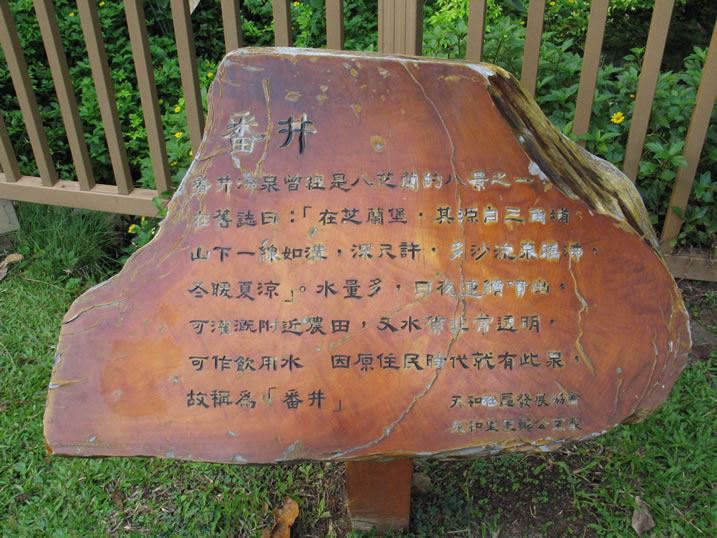 番井
番井沸泉曾經是八芝蘭的八景之一，
在舊誌曰：「在芝蘭堡，其源自三角埔，
山下一線如港，深尺許，多沙流泉瀑沸，
冬暖夏涼」。水量多，日夜連續噴出，
可灌溉附近農田，又水質非常透明，
可作飲用水　因原住民時代就有此泉，
故稱為「番井」
天和社區發展協會
天和里里辦公室製